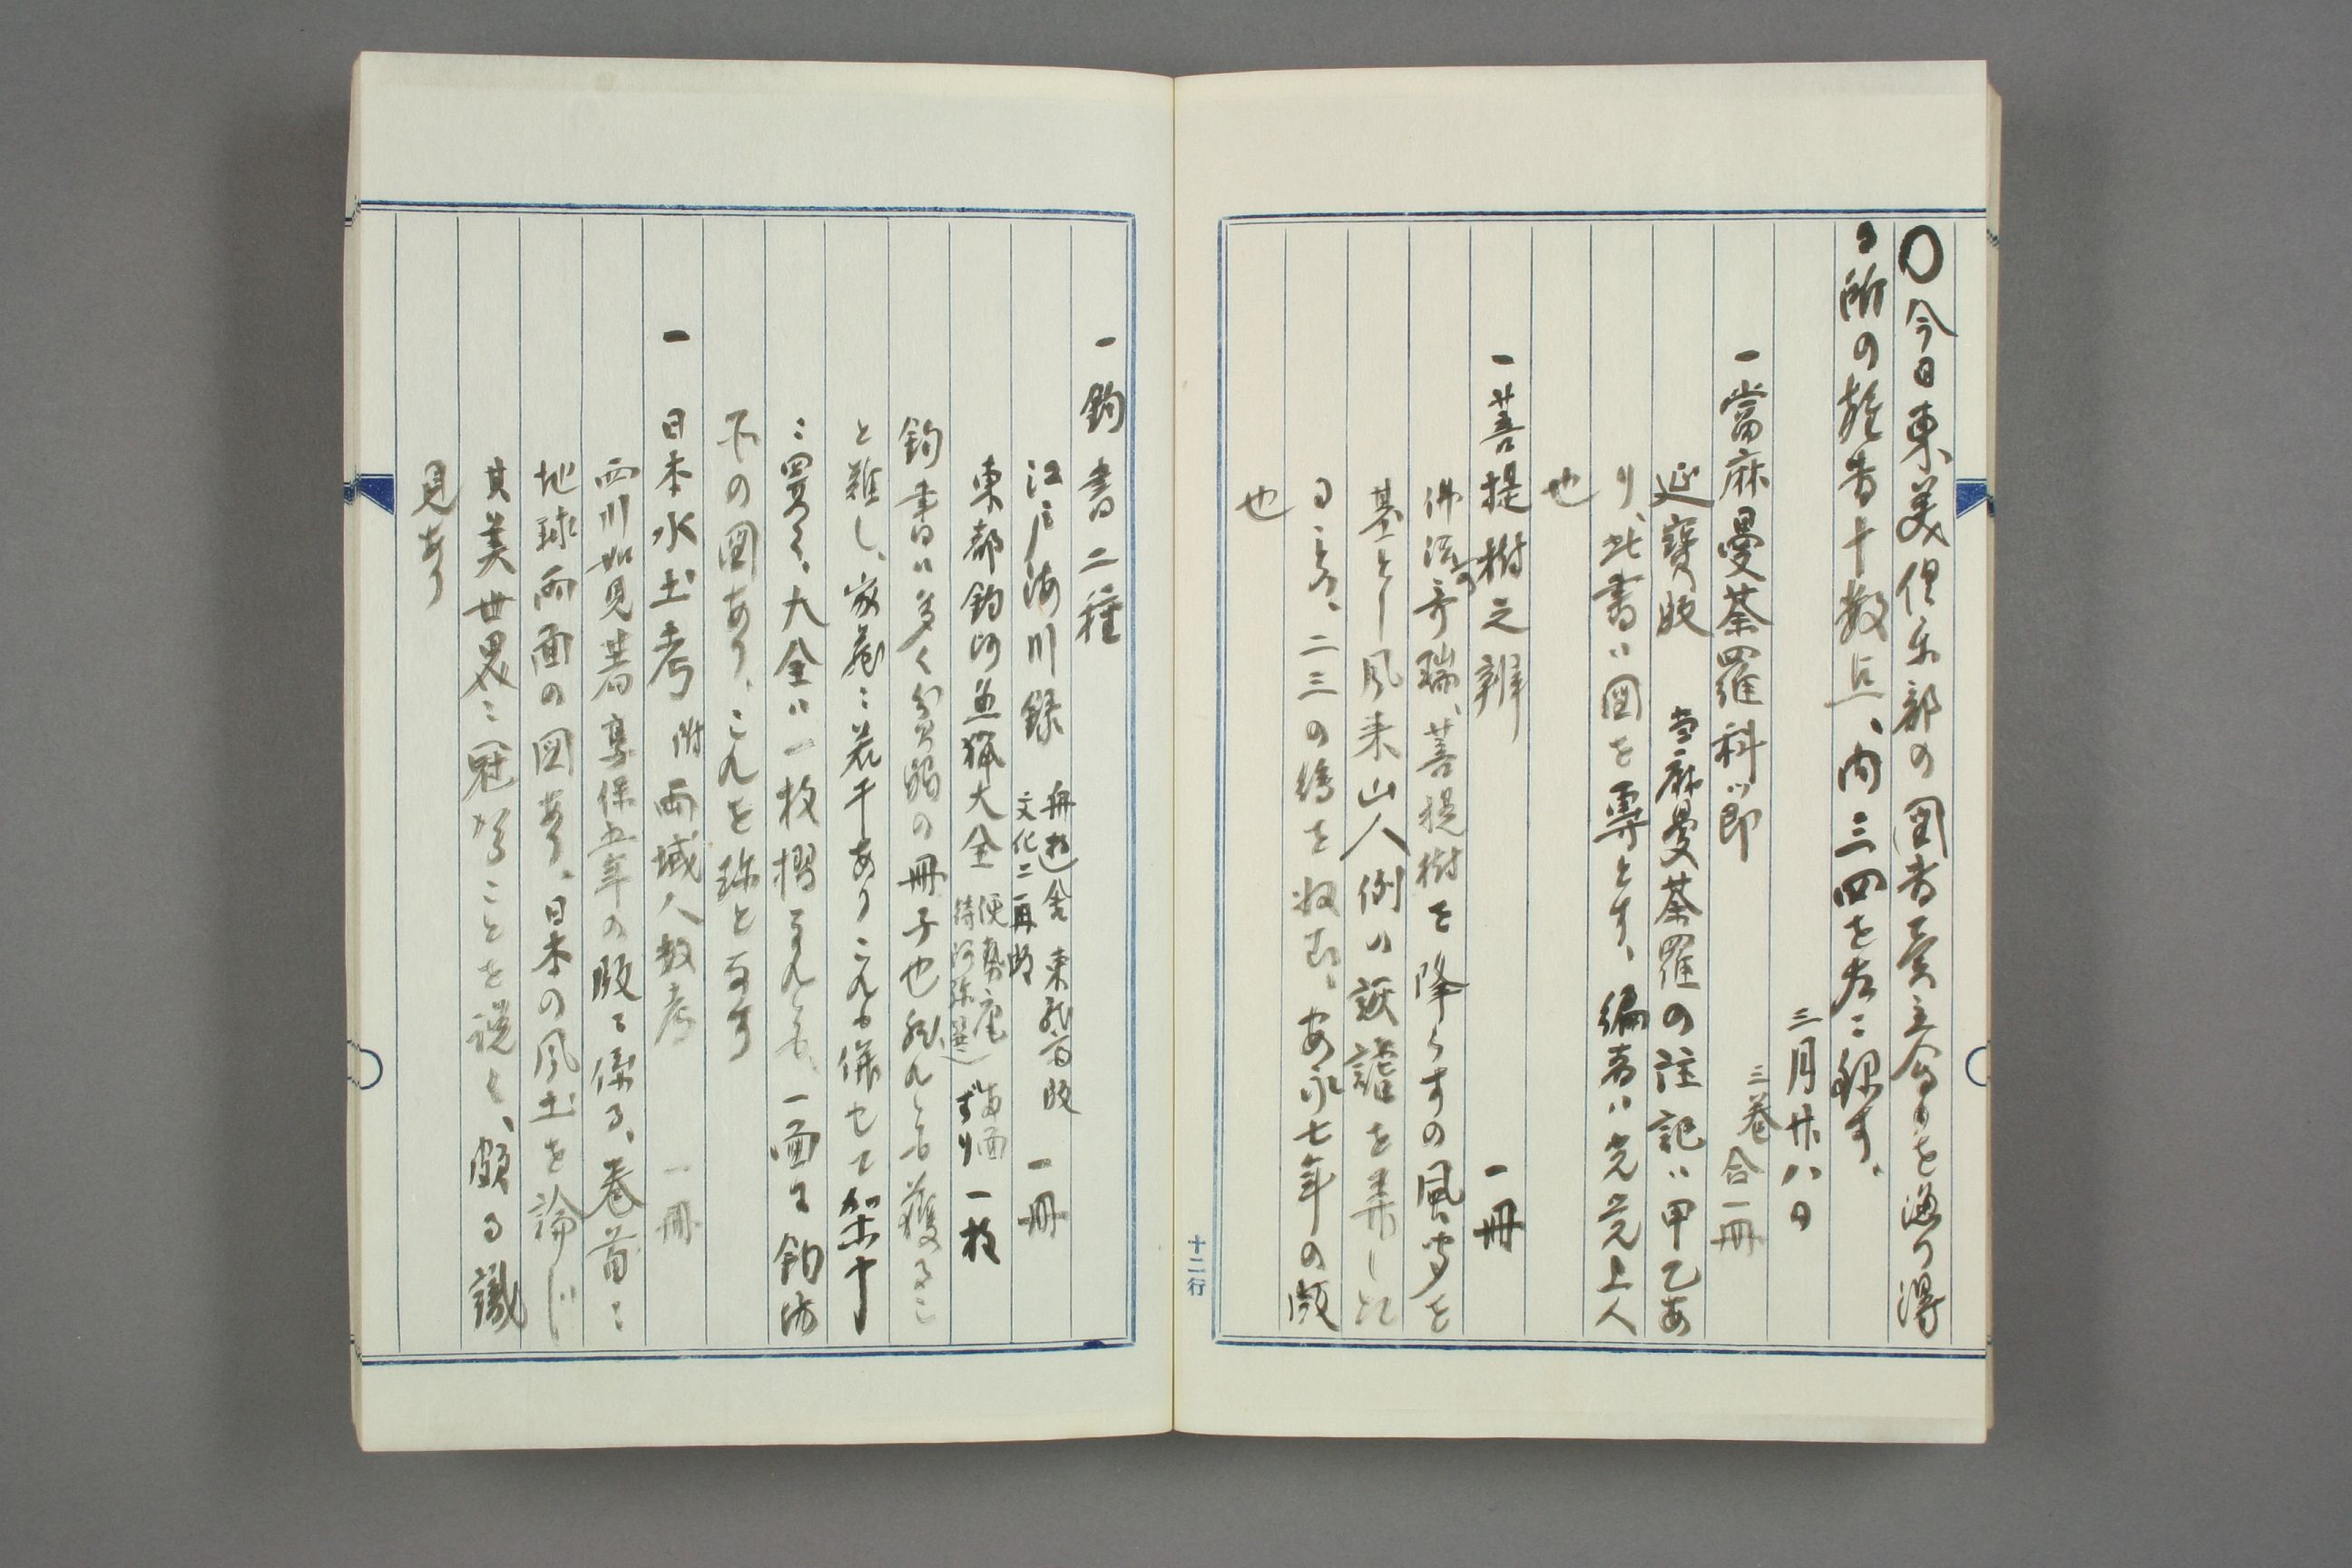 〇今日東美倶楽部の図書売立会を漁り得
る所の雑書十数点、内三四を左ニ録す、
三月廿八日
一當麻曼荼羅科節 三巻合一冊
延寳版 当麻曼荼羅の註記ハ甲乙あ
り、此書ハ図を専とす、編者ハ光覚上人
也
一菩提樹之辨 一冊
佛法の奇瑞、菩提樹を降らすの風聞を
基とし風来山人例の諧謔を弄した
るもの、二三の絵を収む、安永七年の版
也
十二行
一釣書二種
江戸海川録 舟遊舎 東龍斎版 文化二再版 一冊
東都釣河魚猟大全 便勢庵 待河弥選 両面ずり 一枚
釣書ハ多く貧弱の冊子也然れとも獲るこ
と難し、家蔵ニ若干ありこれも併せて架中
ニ置く、大全ハ一枚摺なれとも、一面ニ釣場
所の図あり、これを珍と為す
一 日本水土考 附両域人数考 一冊
西川如見著享保五年の版ニ係る、巻首ニ
地球両面の図あり、日本の風土を論じ
其美世界ニ冠たることを説く、頗る識
見あり